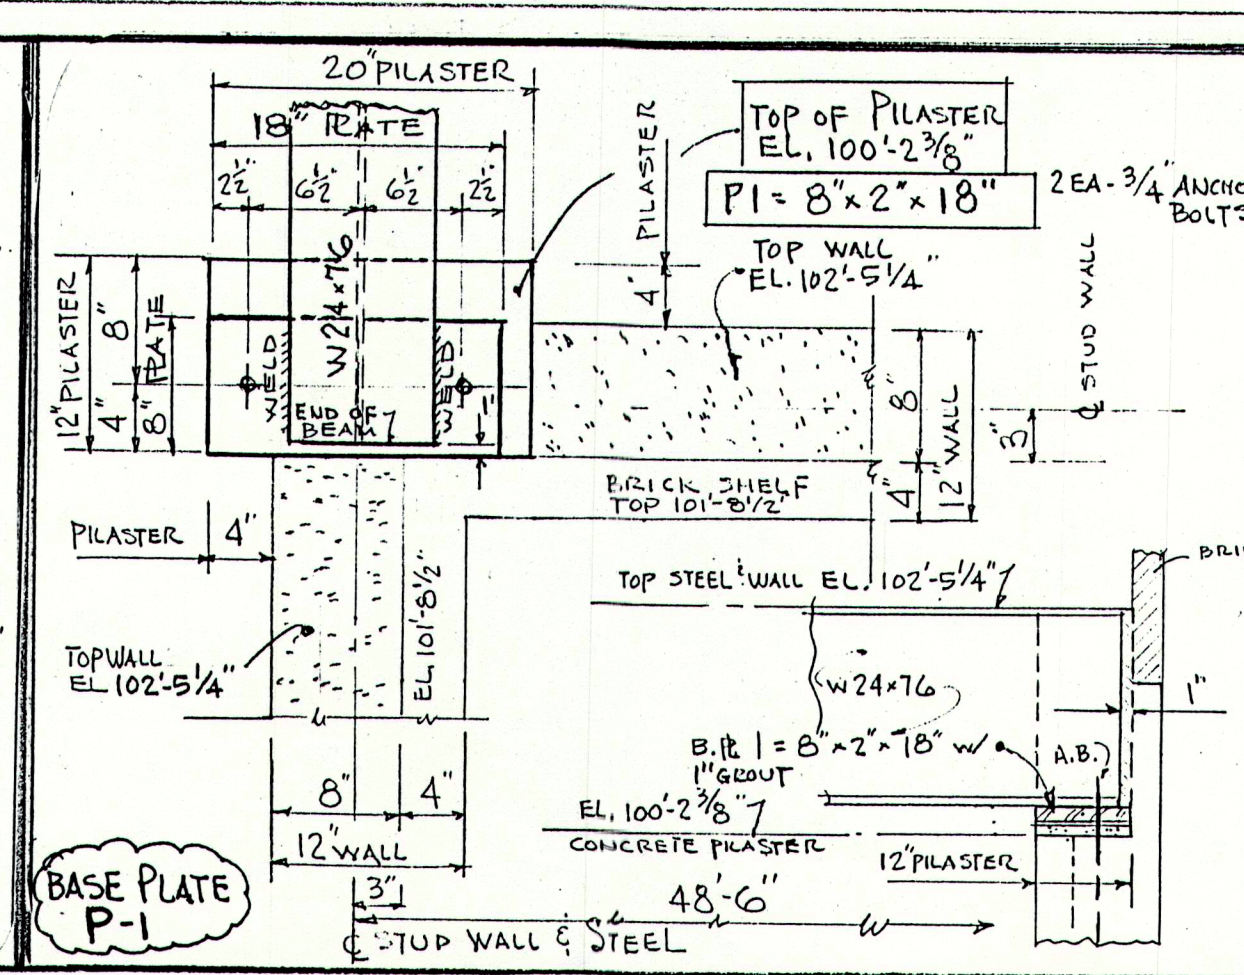 20" PILASTER
18" PLATE
2½" 6½" 6½" 2½"
W24×76
12" PILASTER
8"
4"
8" PLATE
WELD
WELD
END OF
BEAM
1"
PILASTER
4"
TOP OF PILASTER
EL. 100'-2 3/8"
P1 = 8"×2"×18"
2 EA - 3/4" ANCHO
BOLTS
TOP WALL
EL. 102'-5 1/4"
8"
4"
12" WALL
℄ STUD WALL
3"
BRICK SHELF
TOP 101'-8 1/2"
PILASTER 4"
TOP WALL
EL 102'-5 1/4"
EL. 101'-8 1/2"
8" 4"
12" WALL
3"
48'-6"
℄ STUD WALL & STEEL
BASE PLATE
P-1
TOP STEEL & WALL EL. 102'-5 1/4"
BRI
W24×76
1"
B.PL 1 = 8"×2"×18" W/
1" GROUT
A.B.
EL. 100'-2 3/8"
CONCRETE PILASTER
12" PILASTER